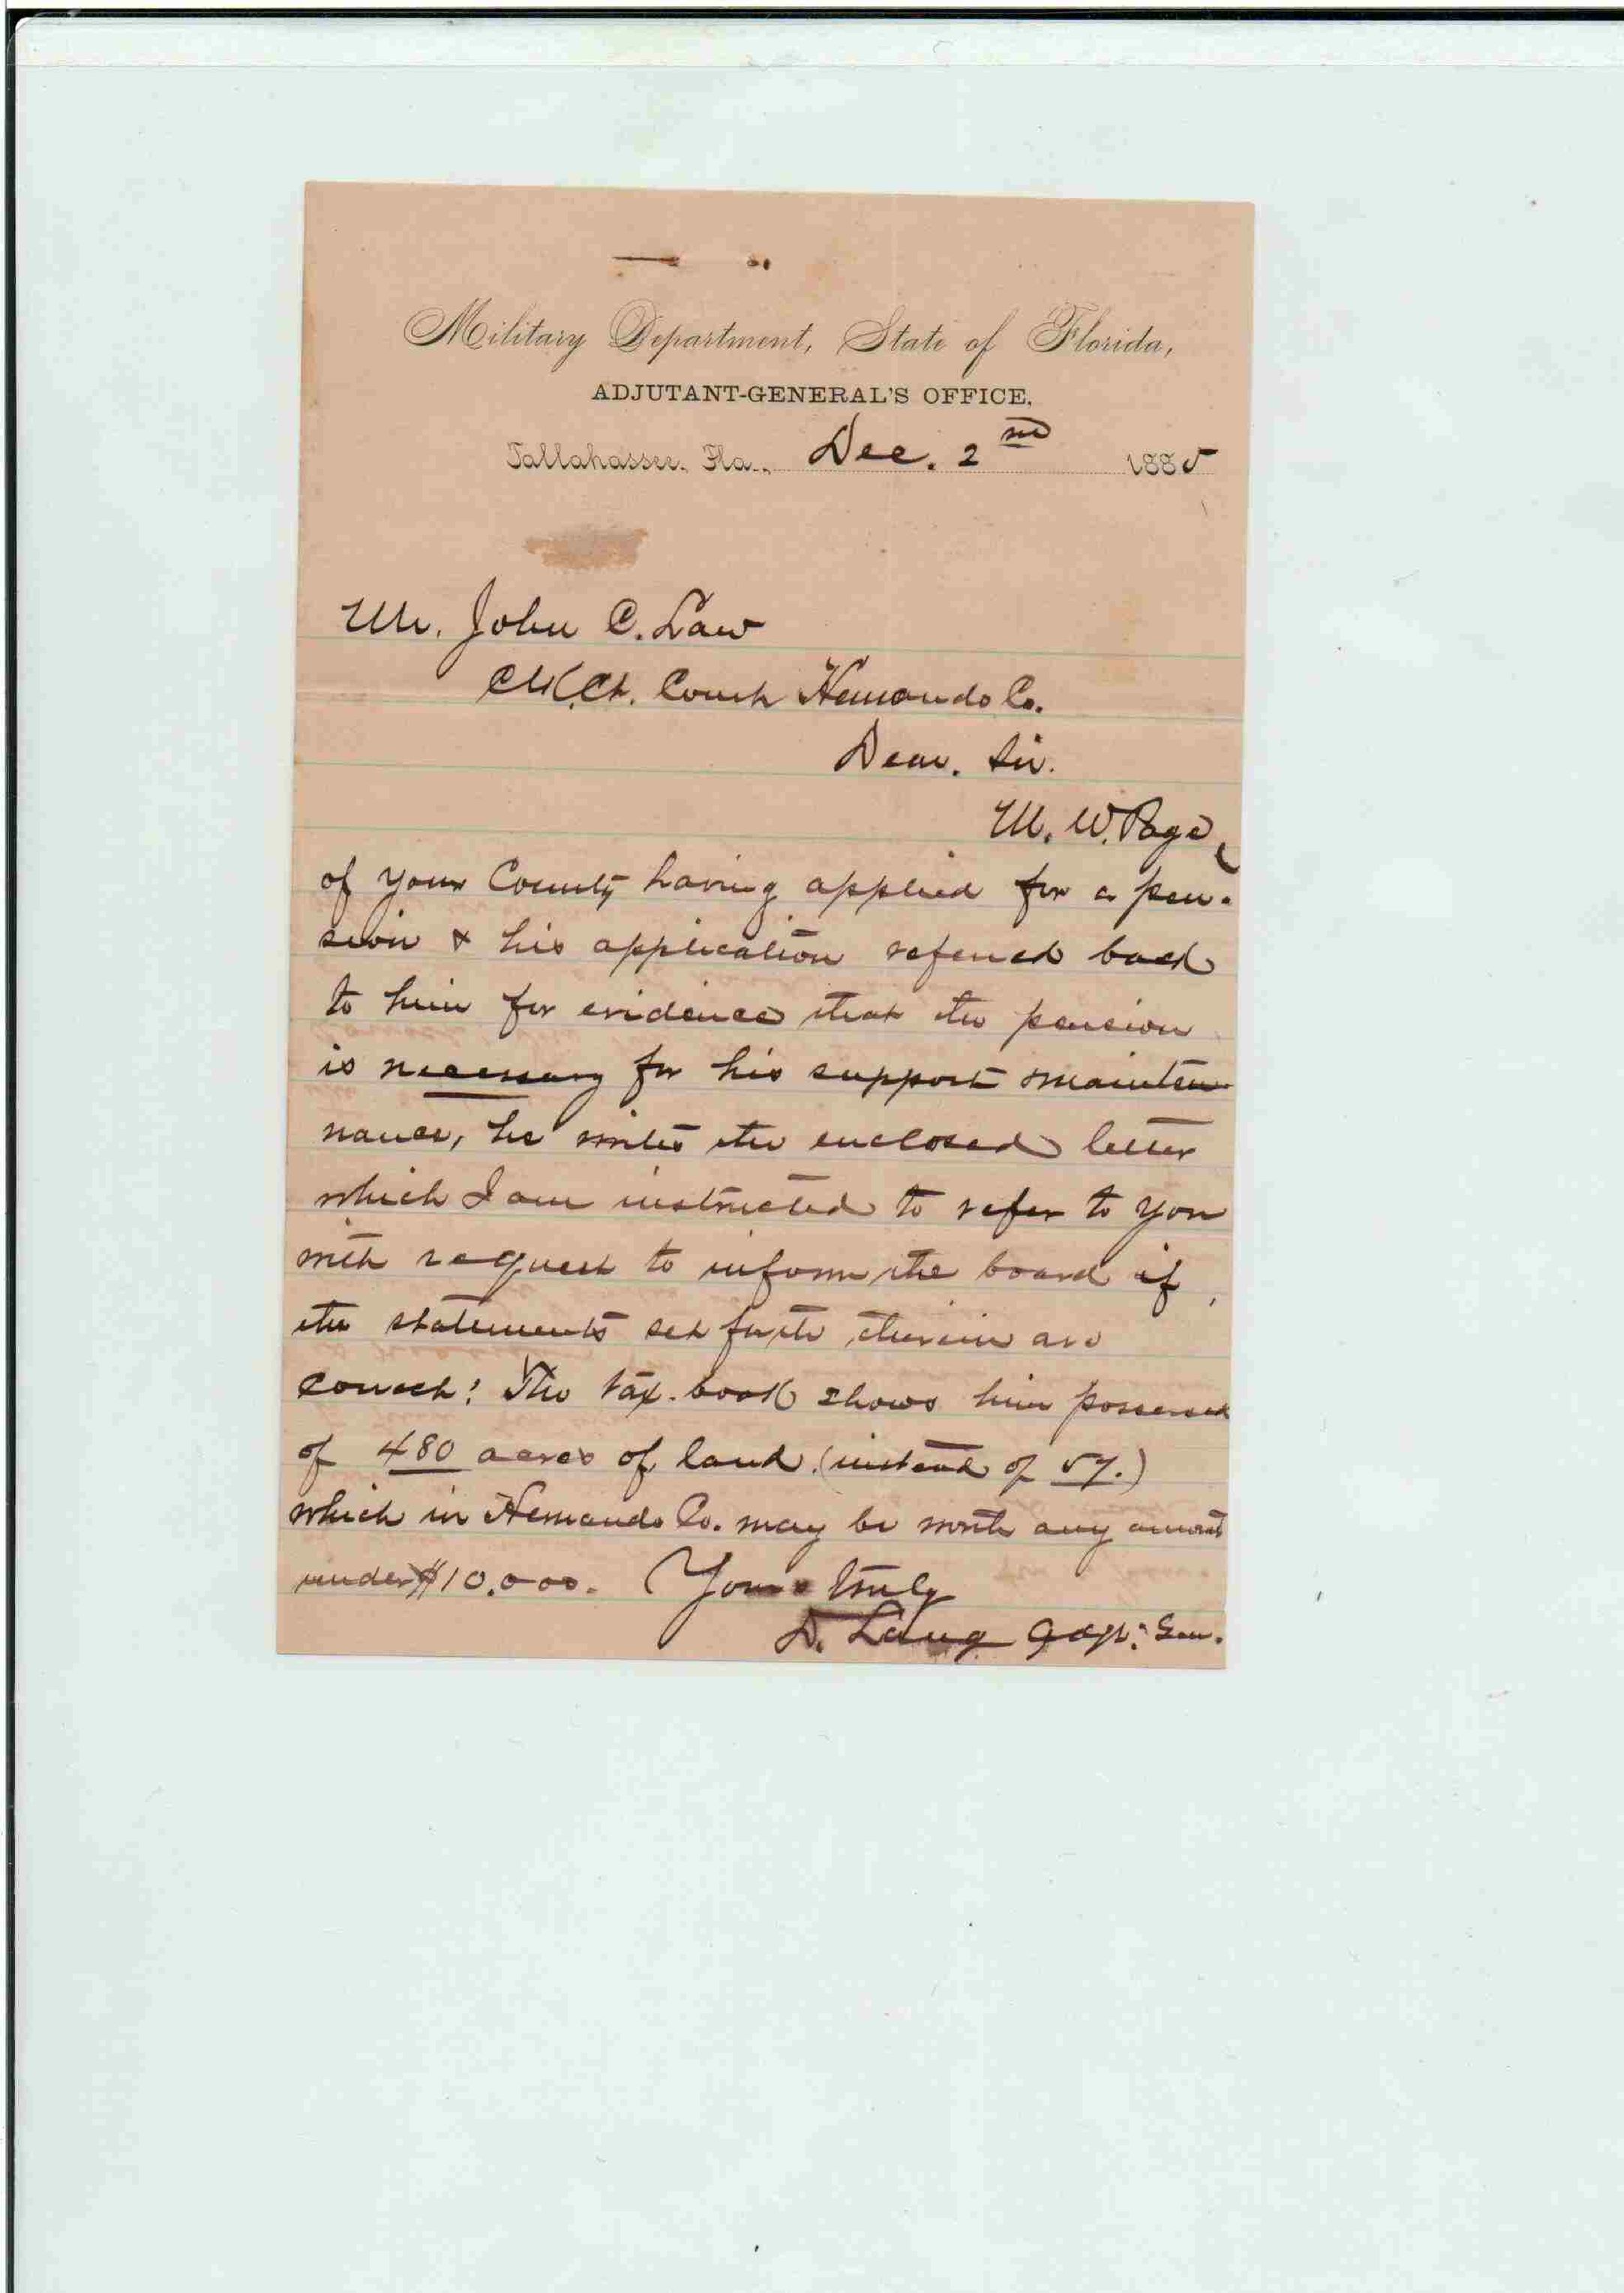 Military Department, State of Florida,
ADJUTANT-GENERAL'S OFFICE,
Tallahassee, Fla., Dec. 2nd 1885
Mr. John C. Law
Clk. Ct. Court Hernando Co.
Dear. Sir.
M. W. Page,
of your County having applied for a pen-
sion & his application referred back
to him for evidence that the pension
is necessary for his support & mainten-
nance, he writes the enclosed letter
which I am instructed to refer to you
with request to inform the board if
the statements set forth therein are
correct! The tax-book shows him possessed
of 480 acres of land (instead of 57.)
which in Hernando Co. may be worth any amount
under $10,000. Yours truly
D. Lang Adjt. Gen.